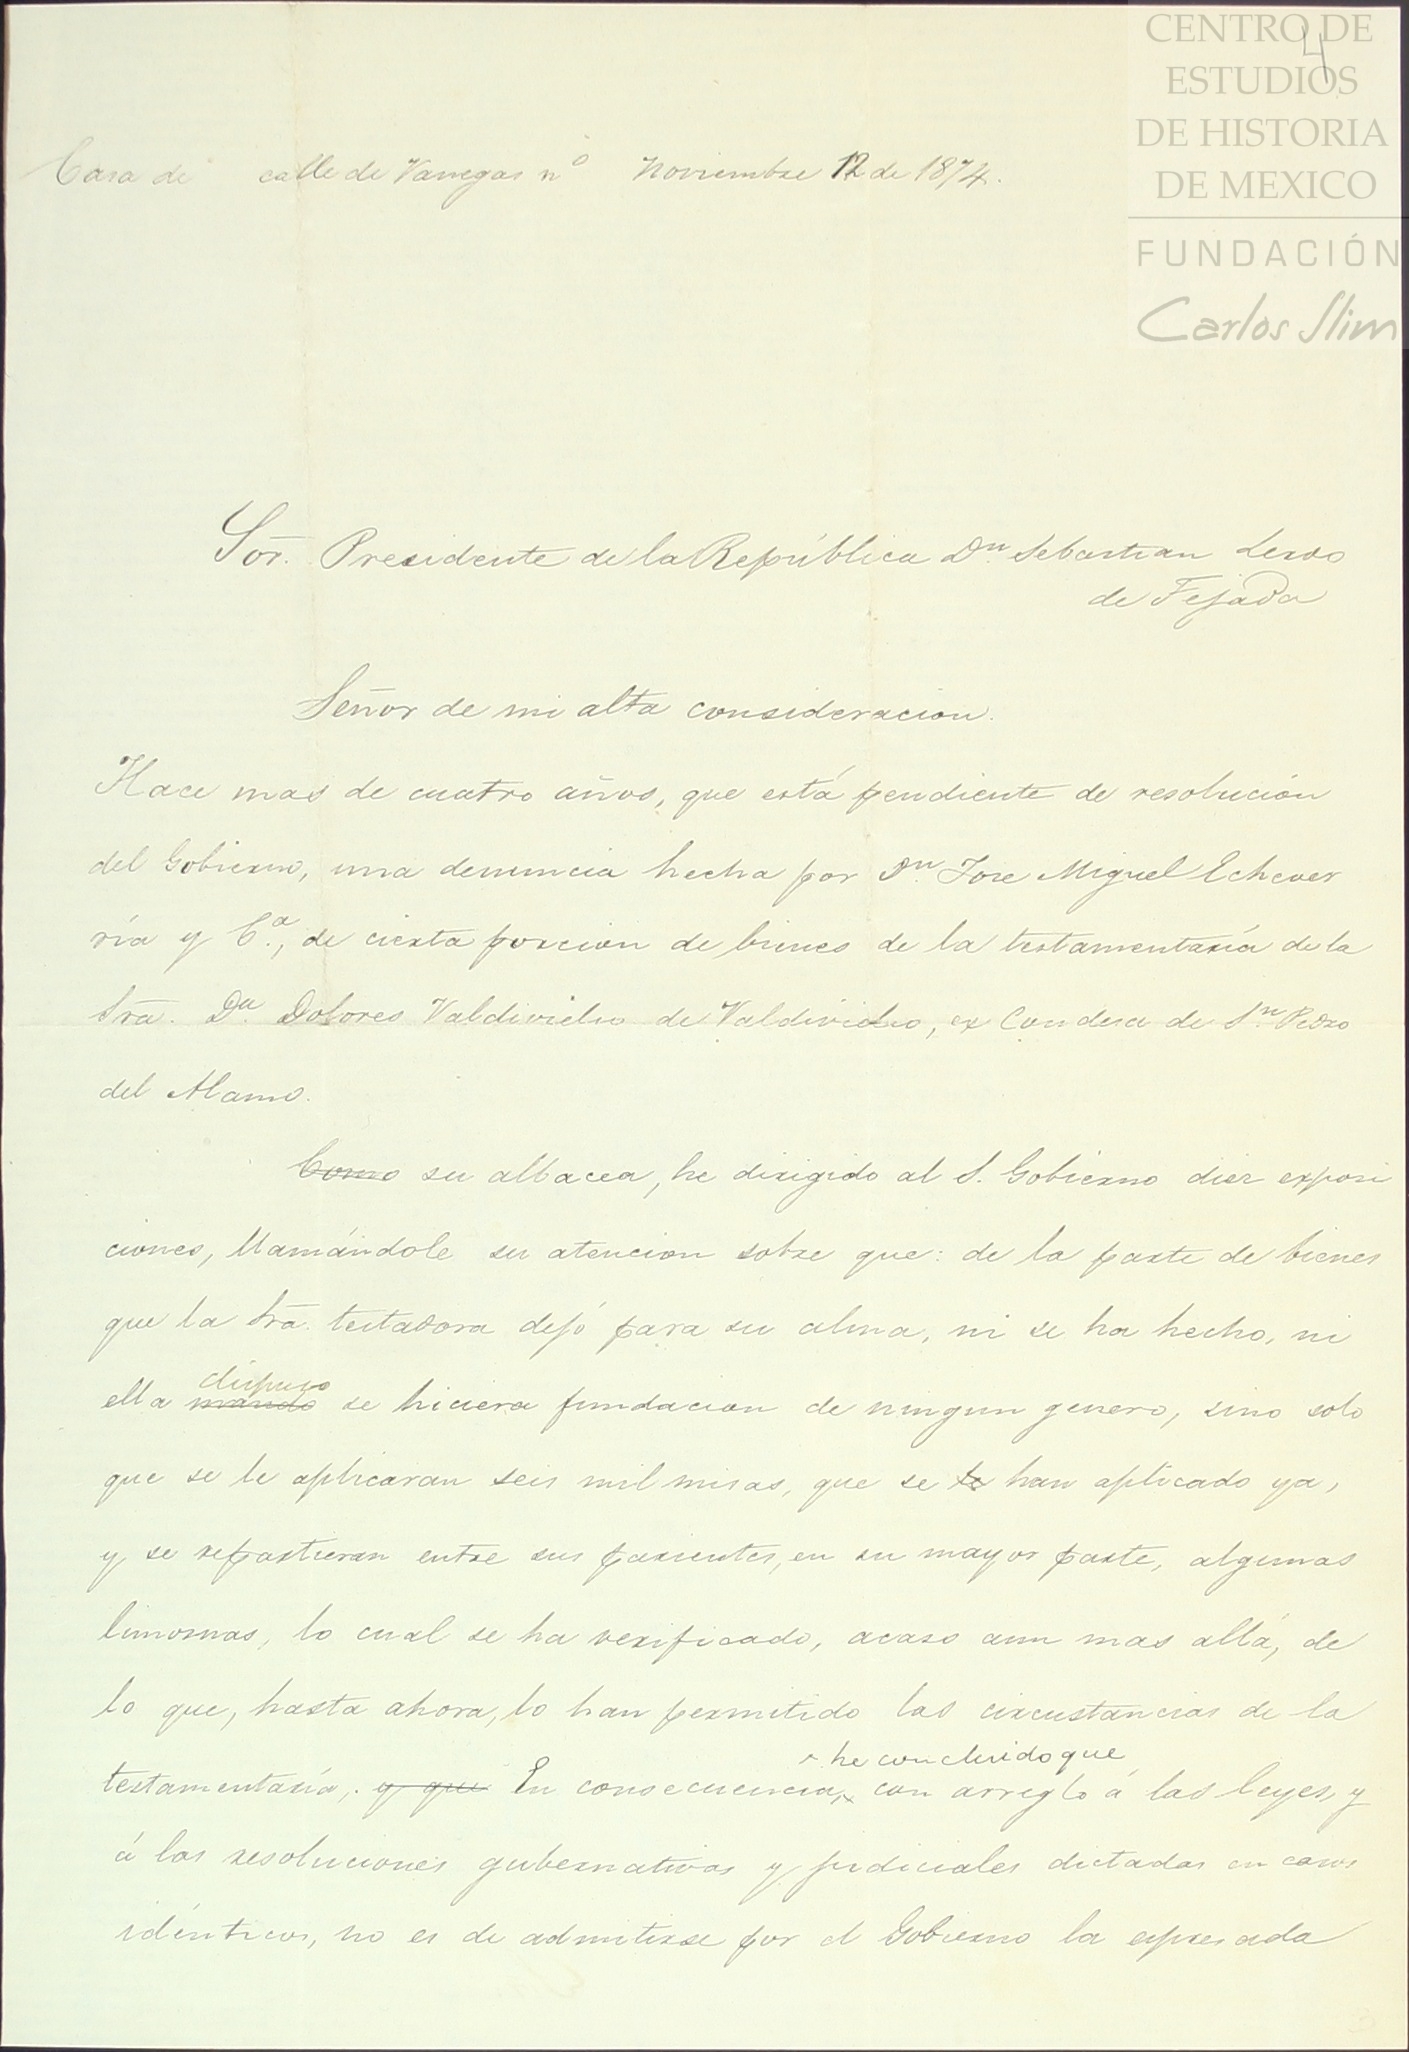 CENTRO DE
ESTUDIOS
DE HISTORIA
DE MEXICO
FUNDACIÓN
Carlos Slim
4
Casa de calle de Vanegas nº Noviembre 12 de 1874.
Sōr. Presidente de la República Dn. Sebastian Lerdo
de Tejada
Señor de mi alta consideracion.
Hace mas de cuatro años, que está pendiente de resolución
del Gobierno, una denuncia hecha por Dn. Jose Miguel Echever
ría y Cª., de cierta porcion de bienes de la testamentaría de la
Srā. Da. Dolores Valdivielso de Valdivielso, ex Condesa de Sn. Pedro
del Alamo.
Como su albacea, he dirigido al S. Gobierno diez exposi
ciones, llamándole su atencion sobre que: de la parte de bienes
que la Srā. testadora dejó para su alma, ni se ha hecho, ni
dispuso
ella mandó se hiciera fundacion de ningun genero, sino solo
que se le aplicaran seis mil misas, que se le han aplicado ya,
y se repartieran entre sus parientes, en su mayor parte, algunas
limosnas, lo cual se ha verificado, acaso aun mas allá, de
lo que, hasta ahora, lo han permitido las circustancias de la
he concluido que
testamentaría, y que En consecuencia, con arreglo á las leyes, y
á las resoluciones gubernativas y judiciales dictadas en casos
idénticos, no es de admitirse por el Gobierno la espresada